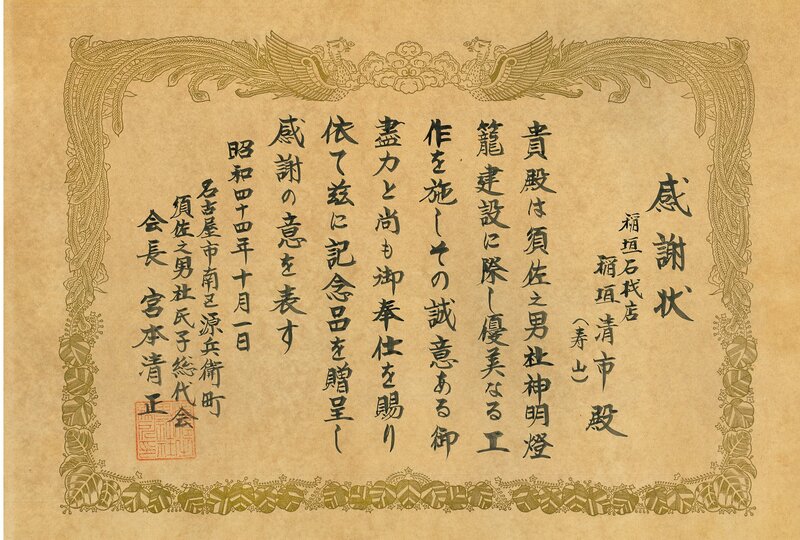 感謝状
稲垣石材店
稲垣清市殿
(寿山)
貴殿は須佐之男社神明燈
籠建設に際し優美なる工
作を施しその誠意ある御
盡力と尚も御奉仕を賜り
依て玆に記念品を贈呈し
感謝の意を表す
昭和四十四年十月一日
名古屋市南区源兵衛町
須佐之男社氏子総代会
会長 宮本清正